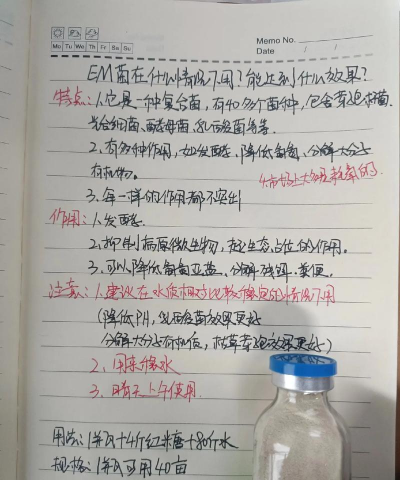 Memo No.
Mo Tu We Th Fr Sa Su
Date / /
EM菌在什么情况下用?能达到什么效果?
特点:1.它是一种复合菌,有40多个菌种,包含芽孢杆菌、
光合细菌、酵母菌、乳酸菌等等.
2.有多种作用,如发酵、降低氨氮、分解大分子
有机物。
4.市场上大多是耗氧的.
3.每一样的作用都不突出
作用:1.发酵.
2.抑制病原微生物,起生态占位的作用。
3.可以降低氨氮亚盐、分解残饵、粪便。
注意:1.建议在水质相对比较稳定的情况下用
(降低PH,乳酸菌效果更好
分解大分子有机质,枯草芽孢效果更好)
2、用来稳水
3、晴天上午使用.
用法:1瓶+4斤红糖+80斤水
规格:1瓶可用40亩